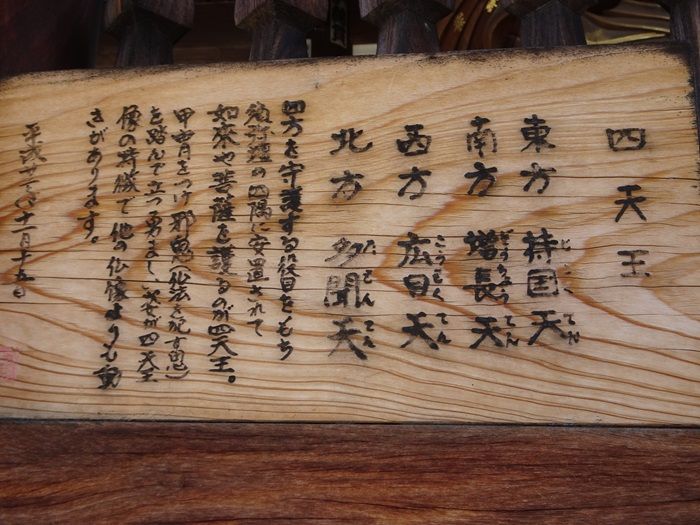 四天王
東方 持国天
じこくてん
南方 増長天
ぞうちょうてん
西方 広目天
こうもくてん
北方 多聞天
たもんてん
四方を守護する役目をもち
須弥壇の四隅に安置されて
如来や菩薩を護るのが四天王。
甲冑をつけ邪鬼(仏法を犯す鬼)
を踏んで立つ勇ましい姿が四天王
像の特徴で他の仏像よりも動
きがあります。
平成 十一月十五日